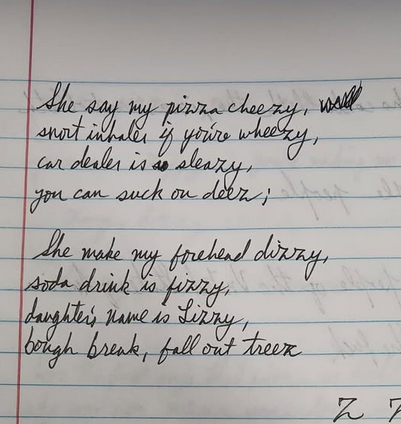 She say my pizza cheezy,
snort inhaler if you're wheezy,
car dealer is sleazy,
you can suck on deez;
She make my forehead dizzy,
soda drink is fizzy,
daughter's name is Lizzy,
bough break, fall out treez
Z Z